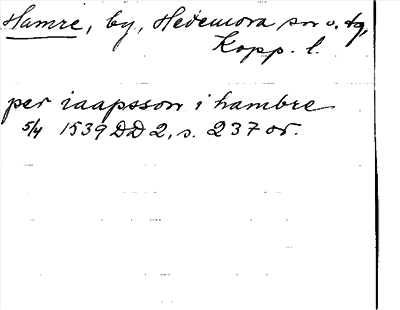 Hamre, by, Hedemora sn o. tg,
Kopp. l.
per iaapsson i hambre
5/4 1539 DD 2, s. 237 or.